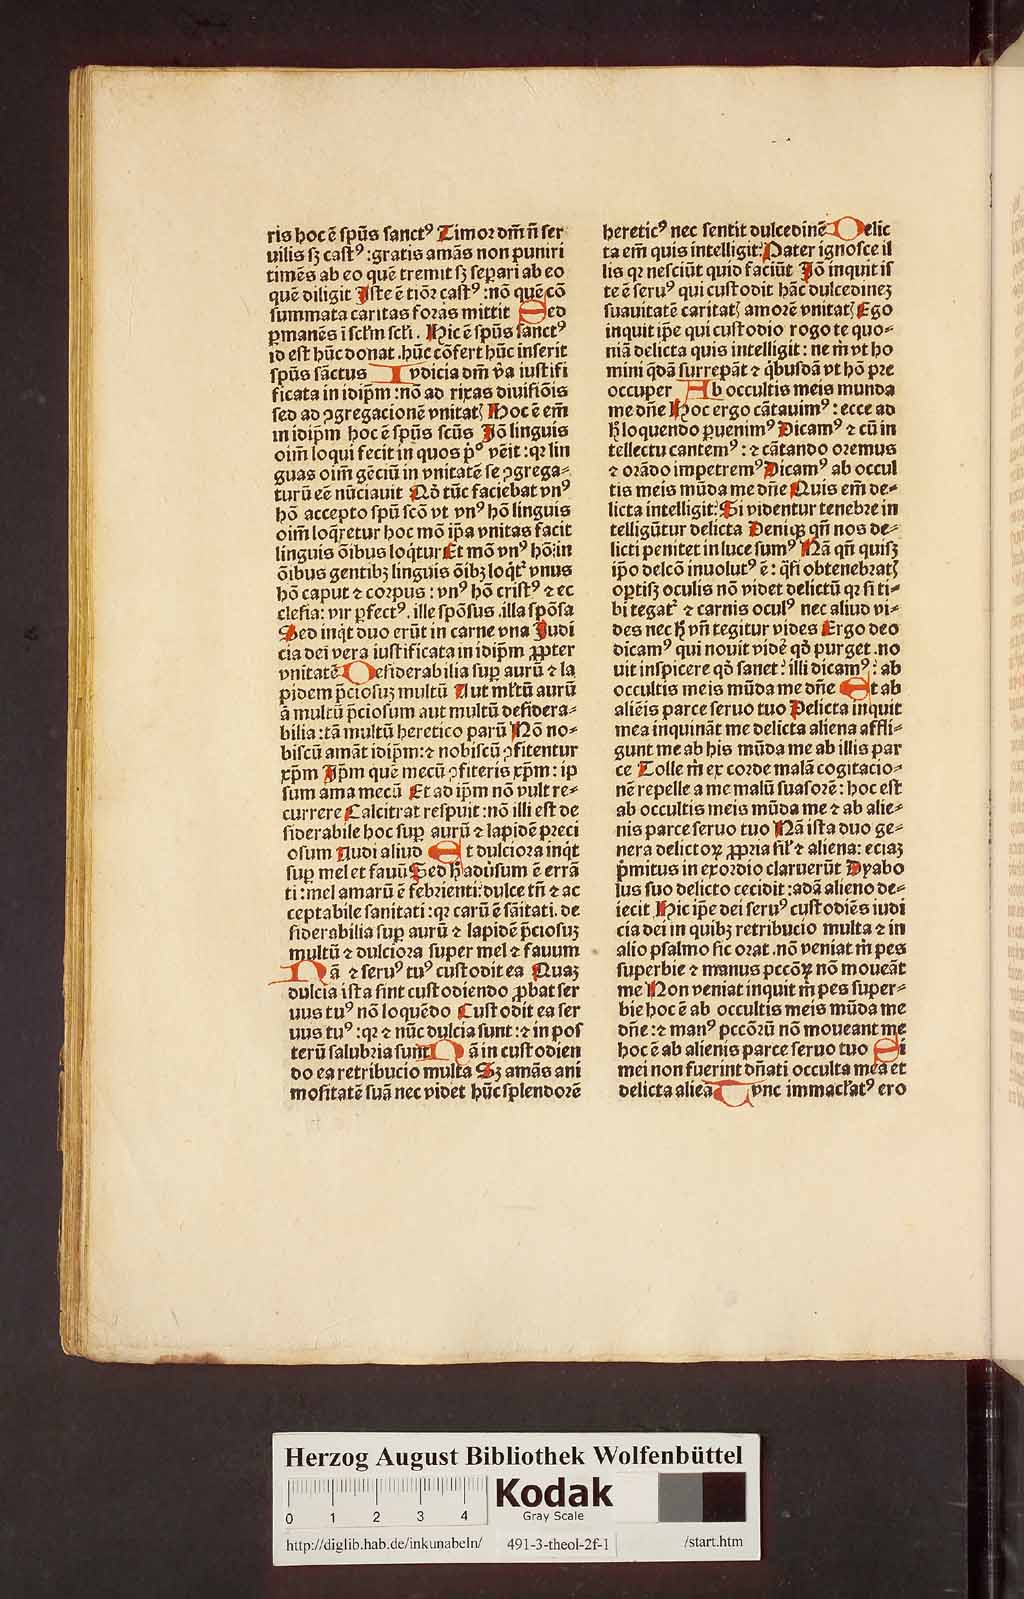 ris hoc ē spūs sanctꝰ Timor dm̄ n̄ ser
uilis sꝫ castꝰ :gratis amās non puniri
timēs ab eo quē tremit sꝫ seꝑari ab eo
quē diligit Iste ē tiōr castꝰ :nō quē cō
summata caritas foras mittit Sed
ꝑmanēs ī sclm̄ scli̅. Hic ē spūs sanctꝰ
id est hūc donat .hūc cōfert hūc inserit
spūs sāctus Iudicia dm̄ v̄a iustifi
ficata in idip̄m :nō ad rixas diuisiōis
sed ad ꝯgregacionē vnitatꝭ Hoc ē em̄
in idip̄m hoc ē spūs scūs Iō linguis
oim̄ loqui fecit in quos p̊ vēit :qꝛ lin
guas oim̄ gēciū in vnitatē se ꝯgrega⸗
turū eē nūciauit Nō tūc faciebat vnꝰ
hō accepto spū scō vt vnꝰ hō linguis
oim̄ loq̄retur hoc mō ip̄a vnitas facit
linguis ōibus loq̄tur Et mō vnꝰ hō: in
ōibus gentibꝫ linguis ōibꝫ loq̄tᷣ vnus
hō caput ⁊ corpus : vnꝰ hō cristꝰ ⁊ ec
clesia: vir ꝑfectꝰ. ille spōsus .illa spōsa
Sed inq̄t duo erūt in carne vna Iudi
cia dei vera iustificata in idip̄m ꝓpter
vnitatē Desiderabilia suꝑ aurū ⁊ la
pidem p̄ciosuꝫ multū Aut ml̄tū aurū
ā multū p̄ciosum aut multū desidera⸗
bilia :tā multū heretico parū Nō no⸗
biscū amāt idip̄m:⁊ nobiscū ꝯfitentur
xp̄m Ip̄m quē mecū ꝯfiteris xp̄m : ip
sum ama mecū Et ad ip̄m nō vult re⸗
currere Calcitrat respuit :nō illi est de
siderabile hoc suꝑ aurū ⁊ lapidē preci
osum Audi aliud Et dulciora inq̄t
suꝑ mel et fauū Sed h̄ aduˀsum ē errā
ti :mel amarū ē febrienti: dulce tn̄ ⁊ ac
ceptabile sanitati :qꝛ carū ē sāitati. de
siderabilia suꝑ aurū ⁊ lapidē p̄ciosuꝫ
multū ⁊ dulciora super mel ⁊ fauum
Nā ⁊ seruꝰ tuꝰ custodit ea Quaꝫ
dulcia ista sint custodiendo ꝓbat ser
uus tuꝰ nō loquēdo Custodit ea ser
uus tuꝰ :qꝛ ⁊ nūc dulcia sunt :⁊ in pos
terū salubria sunt Nā in custodien
do ea retribucio multa Sꝫ amās ani
mositatē suā nec videt hūc splendorē
hereticꝰ nec sentit dulcedinē Delic
ta em̄ quis intelligit: Pater ignosce il
lis qꝛ nesciūt quid faciūt Iō inquit is
te ē seruꝰ qui custodit hāc dulcedineꝫ
suauitatē caritatꝭ amorē vnitatꝭ Ego
inquit ip̄e qui custodio rogo te quo⸗
niā delicta quis intelligit : ne m̄ vt ho
mini q̄dā surrepāt ⁊ q̄busdā vt hō pre
occuper Ab occultis meis munda
me dn̄e Hoc ergo cātauimꝰ : ecce ad
h̄ loquendo ꝑuenimꝰ Dicamꝰ ⁊ cū in
tellectu cantemꝰ : ⁊ cātando oremus
⁊ orādo impetremꝰ Dicamꝰ ab occul
tis meis mūda me dn̄e Quis em̄ de⸗
licta intelligit: Si videntur tenebre in
telligūtur delicta Deniqꝫ qn̄ nos de⸗
licti penitet in luce sumꝰ Nā qn̄ quisꝫ
ip̄o delcō inuolutꝰ ē : q̄si obtenebratꝭ
oꝑtisꝫ oculis nō videt delictū qꝛ si ti⸗
bi tegatᷣ ⁊ carnis oculꝰ nec aliud vi⸗
des nec h̄ vn̄ tegitur vides Ergo deo
dicamꝰ qui nouit vidē qd̄ purget .no
uit inspicere qd̄ sanet : illi dicamꝰ : ab
occultis meis mūda me dn̄e Et ab
aliēis parce seruo tuo Delicta inquit
mea inquināt me delicta aliena affli⸗
gunt me ab his mūda me ab illis par
ce Tolle m̄ ex corde malā cogitacio⸗
nē repelle a me malū suasorē : hoc est
ab occultis meis mūda me ⁊ ab alie⸗
nis parce seruo tuo Nā ista duo ge⸗
nera delictoꝝ ꝓpria sil̄ ⁊ aliena: eciaꝫ
p̄mitus in exordio claruerūt Dyabo
lus suo delicto cecidit :adā alieno de⸗
iecit Hic ip̄e dei seruꝰ custodiēs iudi
cia dei in quibꝫ retribucio multa ⁊ in
alio psalmo sic orat .nō veniat m̄ pes
superbie ⁊ manus pccōꝝ nō moueāt
me Non veniat inquit m̄ pes super⸗
bie hoc ē ab occultis meis mūda me
dn̄e :⁊ manꝰ pccōrū nō moueant me
hoc ē ab alienis parce seruo tuo Si
mei non fuerint dn̄ati occulta mea et
delicta alieā Tunc immacl̄atꝰ ero
Herzog August Bibliothek Wolfenbüttel
0 1 2 3 4
Kodak
Gray Scale
http://diglib.hab.de/inkunabeln/ 491-3-theol-2f-1 /start.htm